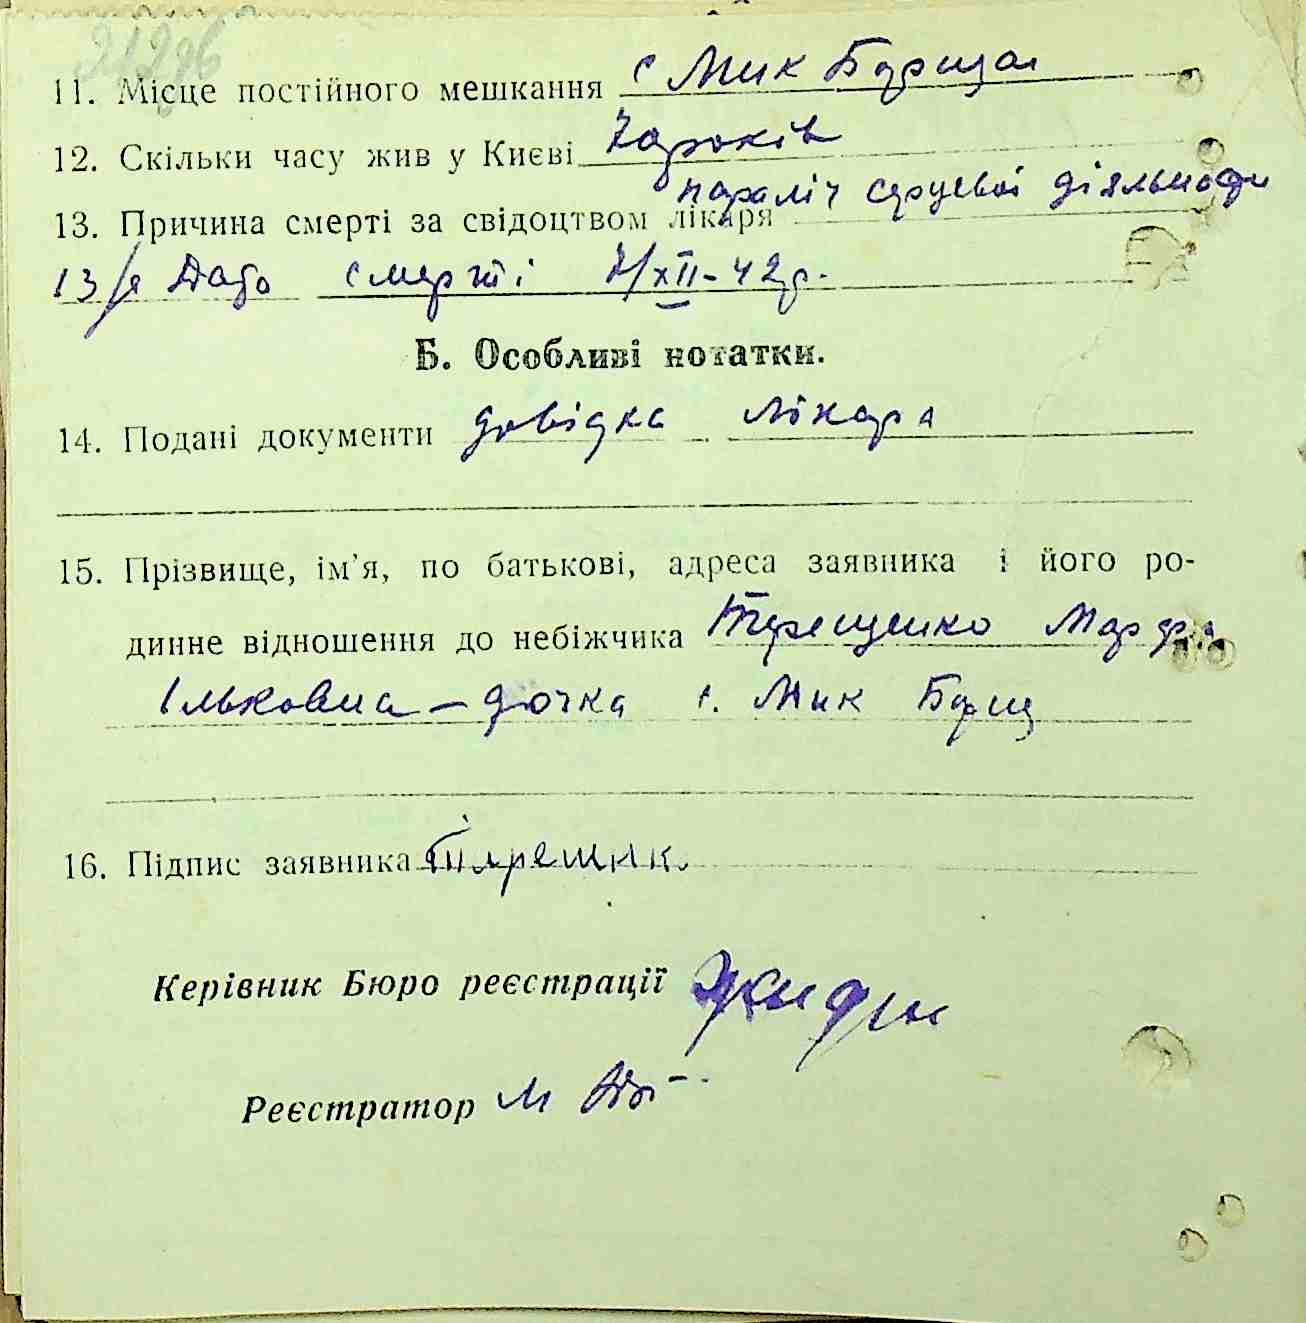 11. Місце постійного мешкання с Мик Борщаг
12. Скільки часу жив у Києві 70 років
13. Причина смерті за свідоцтвом лікаря параліч серцевої діяльности
13/а Дата смерті 7/XII-42р.
Б. Особливі нотатки.
14. Подані документи довідка лікара
15. Прізвище, ім'я, по батькові, адреса заявника і його ро-
динне відношення до небіжчика Терещенко Марфа
Ільковна – дочка с. Мик Борщ
16. Підпис заявника
Керівник Бюро реєстрації
Реєстратор М